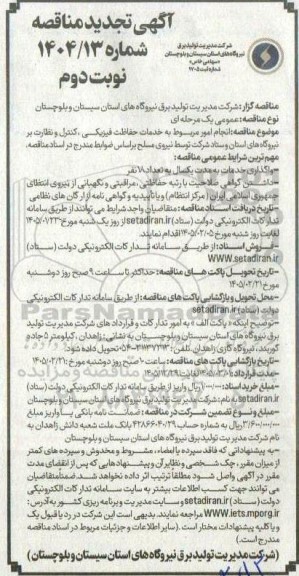 آگهی تجدید مناقصه
شماره ۱۴۰۴/۱۳
نوبت دوم
شرکت مدیریت تولید برق
نیروگاه های استان سیستان و بلوچستان
«سهامی خاص»
شماره ثبت ۹۷۰۵
مناقصه گزار: شرکت مدیریت تولید برق نیروگاه های استان سیستان و بلوچستان
نوع مناقصه: عمومی یک مرحله ای
موضوع مناقصه: انجام امور مربوط به خدمات حفاظت فیزیکی، کنترل و نظارت بر
نیروگاه های استان و ستاد شرکت توسط نیروی مسلح براساس ضوابط مندرج در اسناد مناقصه.
مهم ترین شرایط عمومی مناقصه:
-واگذاری خدمات به مدت یکسال به تعداد ۷۸ نفر
-داشتن گواهی صلاحیت با رتبه حفاظتی، مراقبتی و نگهبانی از نیروی انتظامی
جمهوری اسلامی ایران (مرکز انتظام) و یا تاییدیه و گواهی نامه از ارگان های نظامی
-تاریخ دریافت اسناد مناقصه: متقاضیان واجد شرایط می توانند از طریق سامانه
تدارکات الکترونیکی دولت (ستاد) setadiran.ir از روز یک شنبه مورخ
لغایت روز شنبه مورخ ۱۴۰۵/۰۲/۰۵ اقدام نمایند.
-فروش اسناد: از طریق سامانه تدارکات الکترونیکی دولت (ستاد)
WWW.setadiran.ir
-تاریخ تحویل پاکت های مناقصه: حداکثر تا ساعت ۹ صبح روز دوشنبه
مورخ ۱۴۰۵/۰۲/۲۱
-محل تحویل و بازگشایی پاکت های مناقصه: از طریق سامانه تدارکات الکترونیکی
دولت (ستاد) setadiran.ir
-توضیح اینکه «پاکت الف» به امور تدارکات و قراردادهای شرکت مدیریت تولید
برق نیروگاه های استان سیستان و بلوچستان به نشانی: زاهدان، کیلومتر ۵ جاده
کوییند، نیروگاه گازی زاهدان تحویل داده شود.
-تاریخ بازگشایی پاکت های مناقصه: ساعت ۱۰ صبح روز دوشنبه مورخ ۱۴۰۵/۰۲/۲۱
-مبلغ خرید اسناد: ریال واریز از طریق سامانه تدارکات الکترونیکی دولت (ستاد)
setadiran.ir به نام: شرکت مدیریت تولید برق نیروگاه های استان سیستان و بلوچستان
-مبلغ و نوع تضمین شرکت در مناقصه: ضمانت نامه بانکی یا واریز مبلغ
ریال به شماره حساب بانک ملت شعبه دانش زاهدان به
نام شرکت مدیریت تولید برق نیروگاه های استان سیستان و بلوچستان
-به پیشنهاداتی که فاقد سپرده یا امضاء، مشروط و مخدوش و سپرده های کمتر
از میزان مقرر، چک شخصی و نظایر آن و پیشنهادهایی که پس از انقضای مدت
مقرر در آگهی واصل شود مطلقاً ترتیب اثر داده نخواهد شد. ضمناً متقاضیان
می توانند جهت کسب اطلاعات بیشتر به سایت سامانه تدارکات الکترونیکی
دولت (ستاد) setadiran.ir و سایت مدیریت و برنامه ریزی کشور به آدرس:
www.iets.mporg.ir مراجعه نمایند. بدیهی است این شرکت در رد یا قبول یک
و یا کلیه پیشنهادات مختار است. (سایر اطلاعات و جزئیات مربوط در اسناد مناقصه
مندرج است.)
(شرکت مدیریت تولید برق نیروگاه های استان سیستان و بلوچستان)